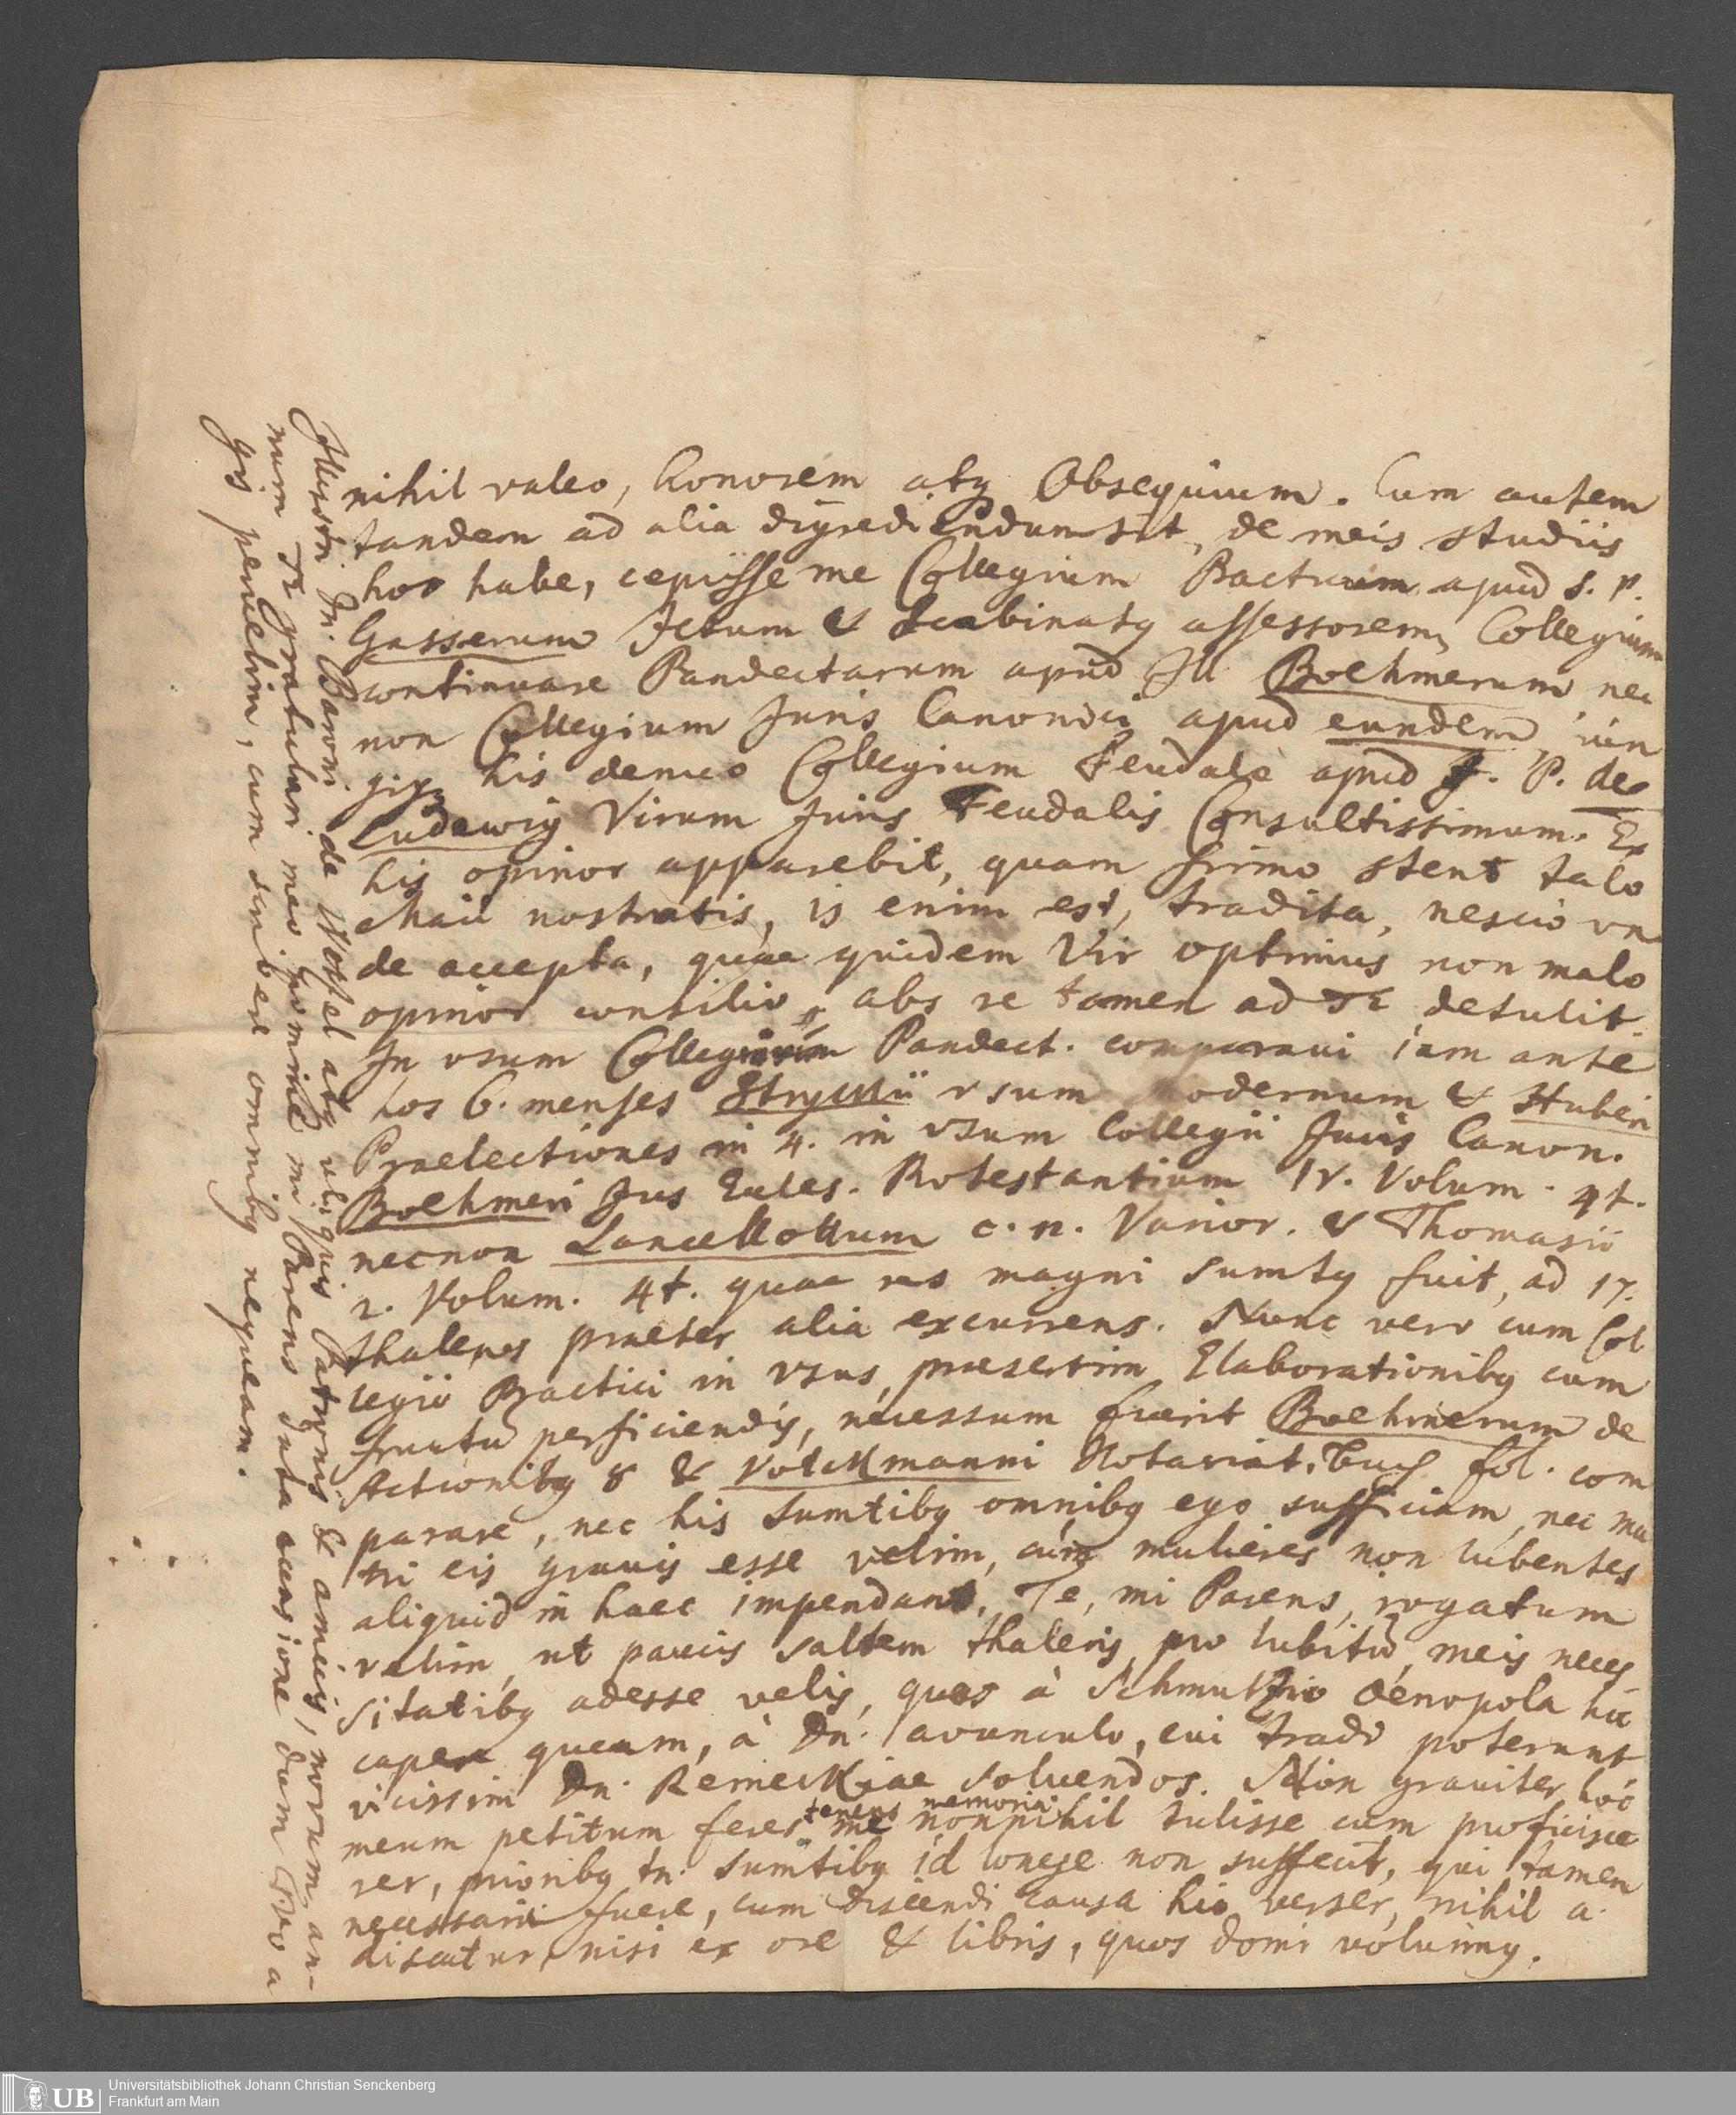 nihil valeo, honorem atq Obsequium. Cum autem
tandem ad alia digrediendum sit, de meis studiis
hoc habe, cepisse me Collegium Practicum apud S. P.
Gasserum Jctum & Scabinatq assessorem, Collegium
continuare Pandectarum apud Ill Boehmerum nec
non Collegium Juris Canonici apud eundem, iun
gig his denuo Collegium Feudale apud J. P. de
Ludewig Virum Juris Feudalis Consultissimum. Ex
his opinor apparebit, quam firmo stent talo
nostratis, is enim est, tradita, nescio vn
de accepta, quae quidem Vir optimus non malo
opinor consilio, abs re tamen ad Te detulit.
In vsum Collegiorum Pandect. comparaui iam ante
hos 6. menses Stryckii vsum modernum & Huberi
Praelectiones in 4. in vsum Collegii Juris Canon.
Boehmeri Jus Eccles. Protestantium IV. Volum. 4t.
necnon Lancellottum c. n. Varior. & Thomasii
2. Volum. 4t. quae res magni sumtq fuit, ad 17.
thaleros praeter alia excurrens. Nunc vero cum Col
legii Practici in vsus, praesertim Elaborationibq cum
fructu perficiendis, necessum fuerit Boehmerum de
Actionibq 8 & Volckmanni Notariat. Buch fol. com
parare, nec his sumtibq omnibq ego sufficiam, nec ma
tri eis grauis esse velim, cum mulieres non lubentes
aliquid in haec impendant, Te, mi Parens, rogatum
velim, ut paucis saltem thaleris, pro lubitu, meis neces
sitatibq adesse velis, quos à Schmutzio Oenopola hic
capere queam, à Dn. avunculo, cui tradi poterunt
vicissim Dn. Remeckiae soluendos. Non grauiter hoc
meum petitum feres tenens memoria me nonnihil tulisse cum proficisce
rer, prioribq tn. sumtibq id longe non suffecit, qui tamen
necessarii fuere, cum discendi causa hic verser, nihil a.
discatur, nisi ex ore & libris, quos domi voluimq.
Illustri Dn. Baroni de Wossel atq reliquis Patronis & amicis, novum an-
num Te gratulari meo nomine mi Parens data occasione dum Pero a
gis peruelim, cum scribere omnibq nequeam.
Universitätsbibliothek Johann Christian Senckenberg
Frankfurt am Main
UB